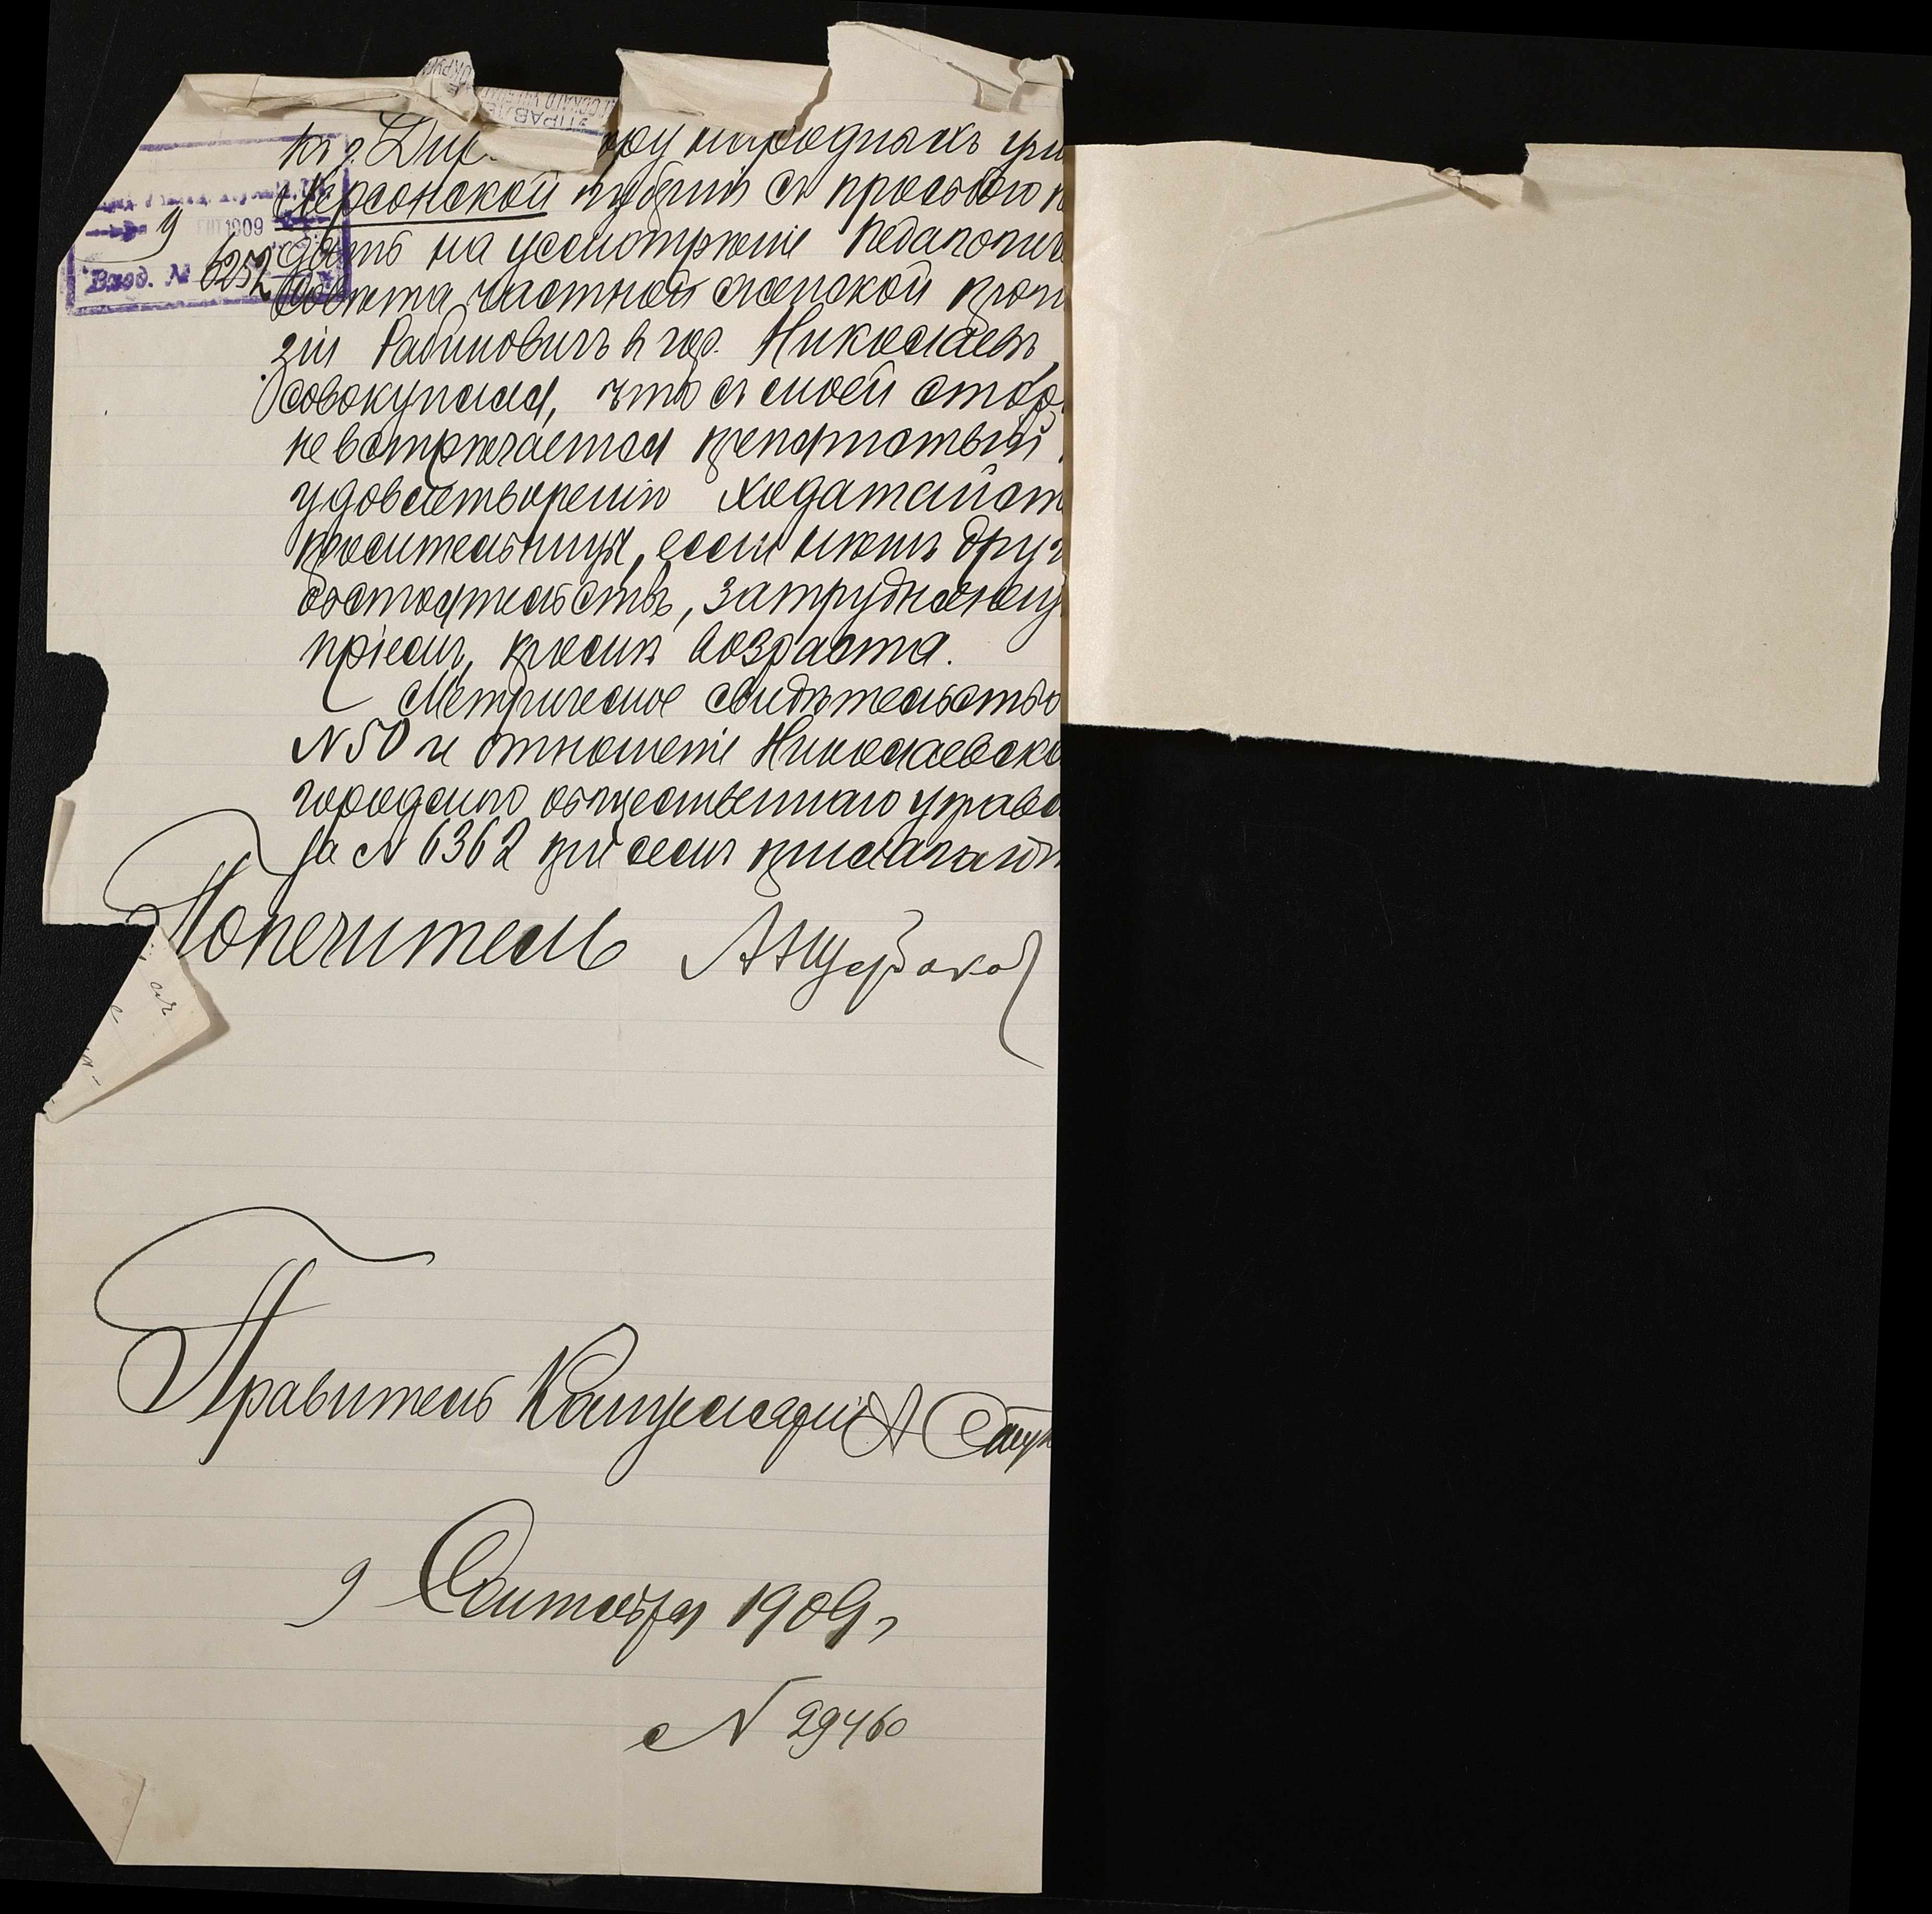 УПРАВЛЕ
ССКАГО УЧЕБНО
ОКРУ
Г. Дир ору народныхъ учи
Херсонской губерніи съ просьбою п
дать на усмотрѣніе Педагогиче
Совѣта частной женской прогим
зіи Рабиновичъ въ гор. Николаевѣ,
совокупляя, что съ моей сторо
не встрѣчается препятствій
удовлетворенію ходатайст
просительницы, если нѣтъ друг
обстоятельствъ, затрудняющ
пріемъ, кромѣ возраста.
Метрическое свидѣтельство
N 50 и отношеніе Николаевска
городского общественнаго управл
за N 6362 при семъ прилагают
9 1909
Вход. № 6252
Попечитель А Щербаков
Правитель Канцеляріи А
9 Сентября 1909 г.
N 29460